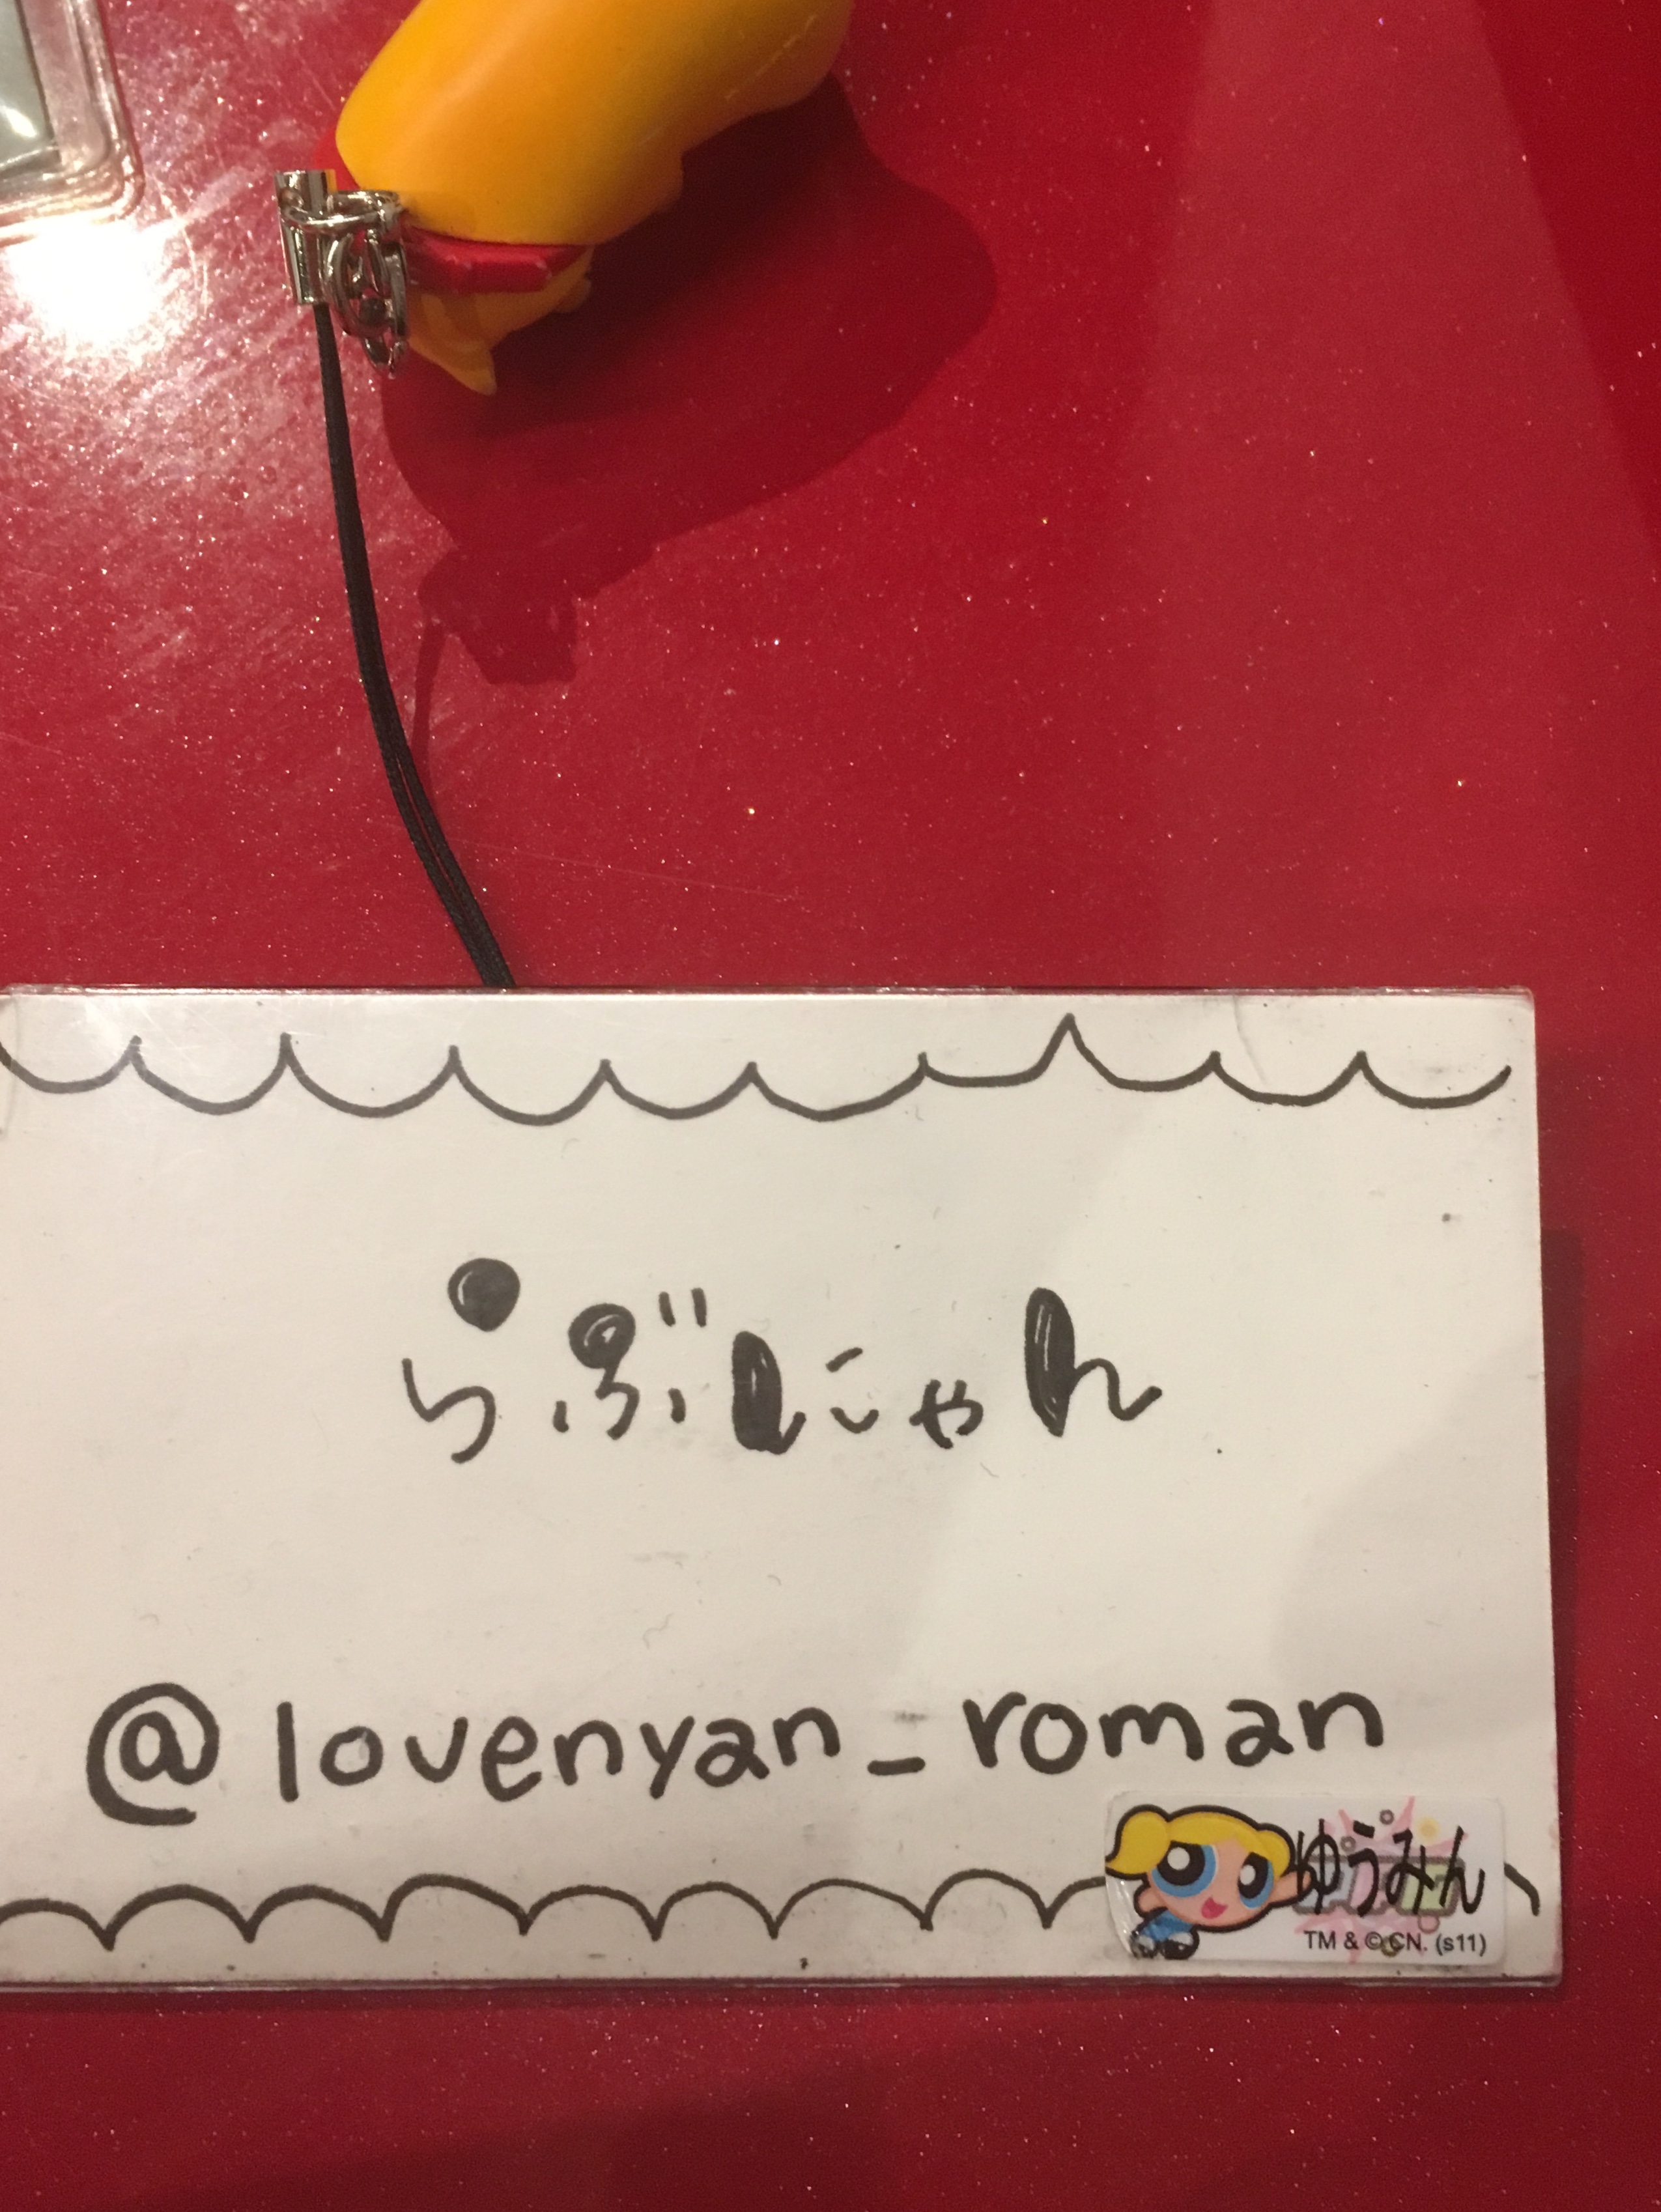 らぶにゃん
@lovenyan_roman
ゆうみん
TM & © CN. (s11)